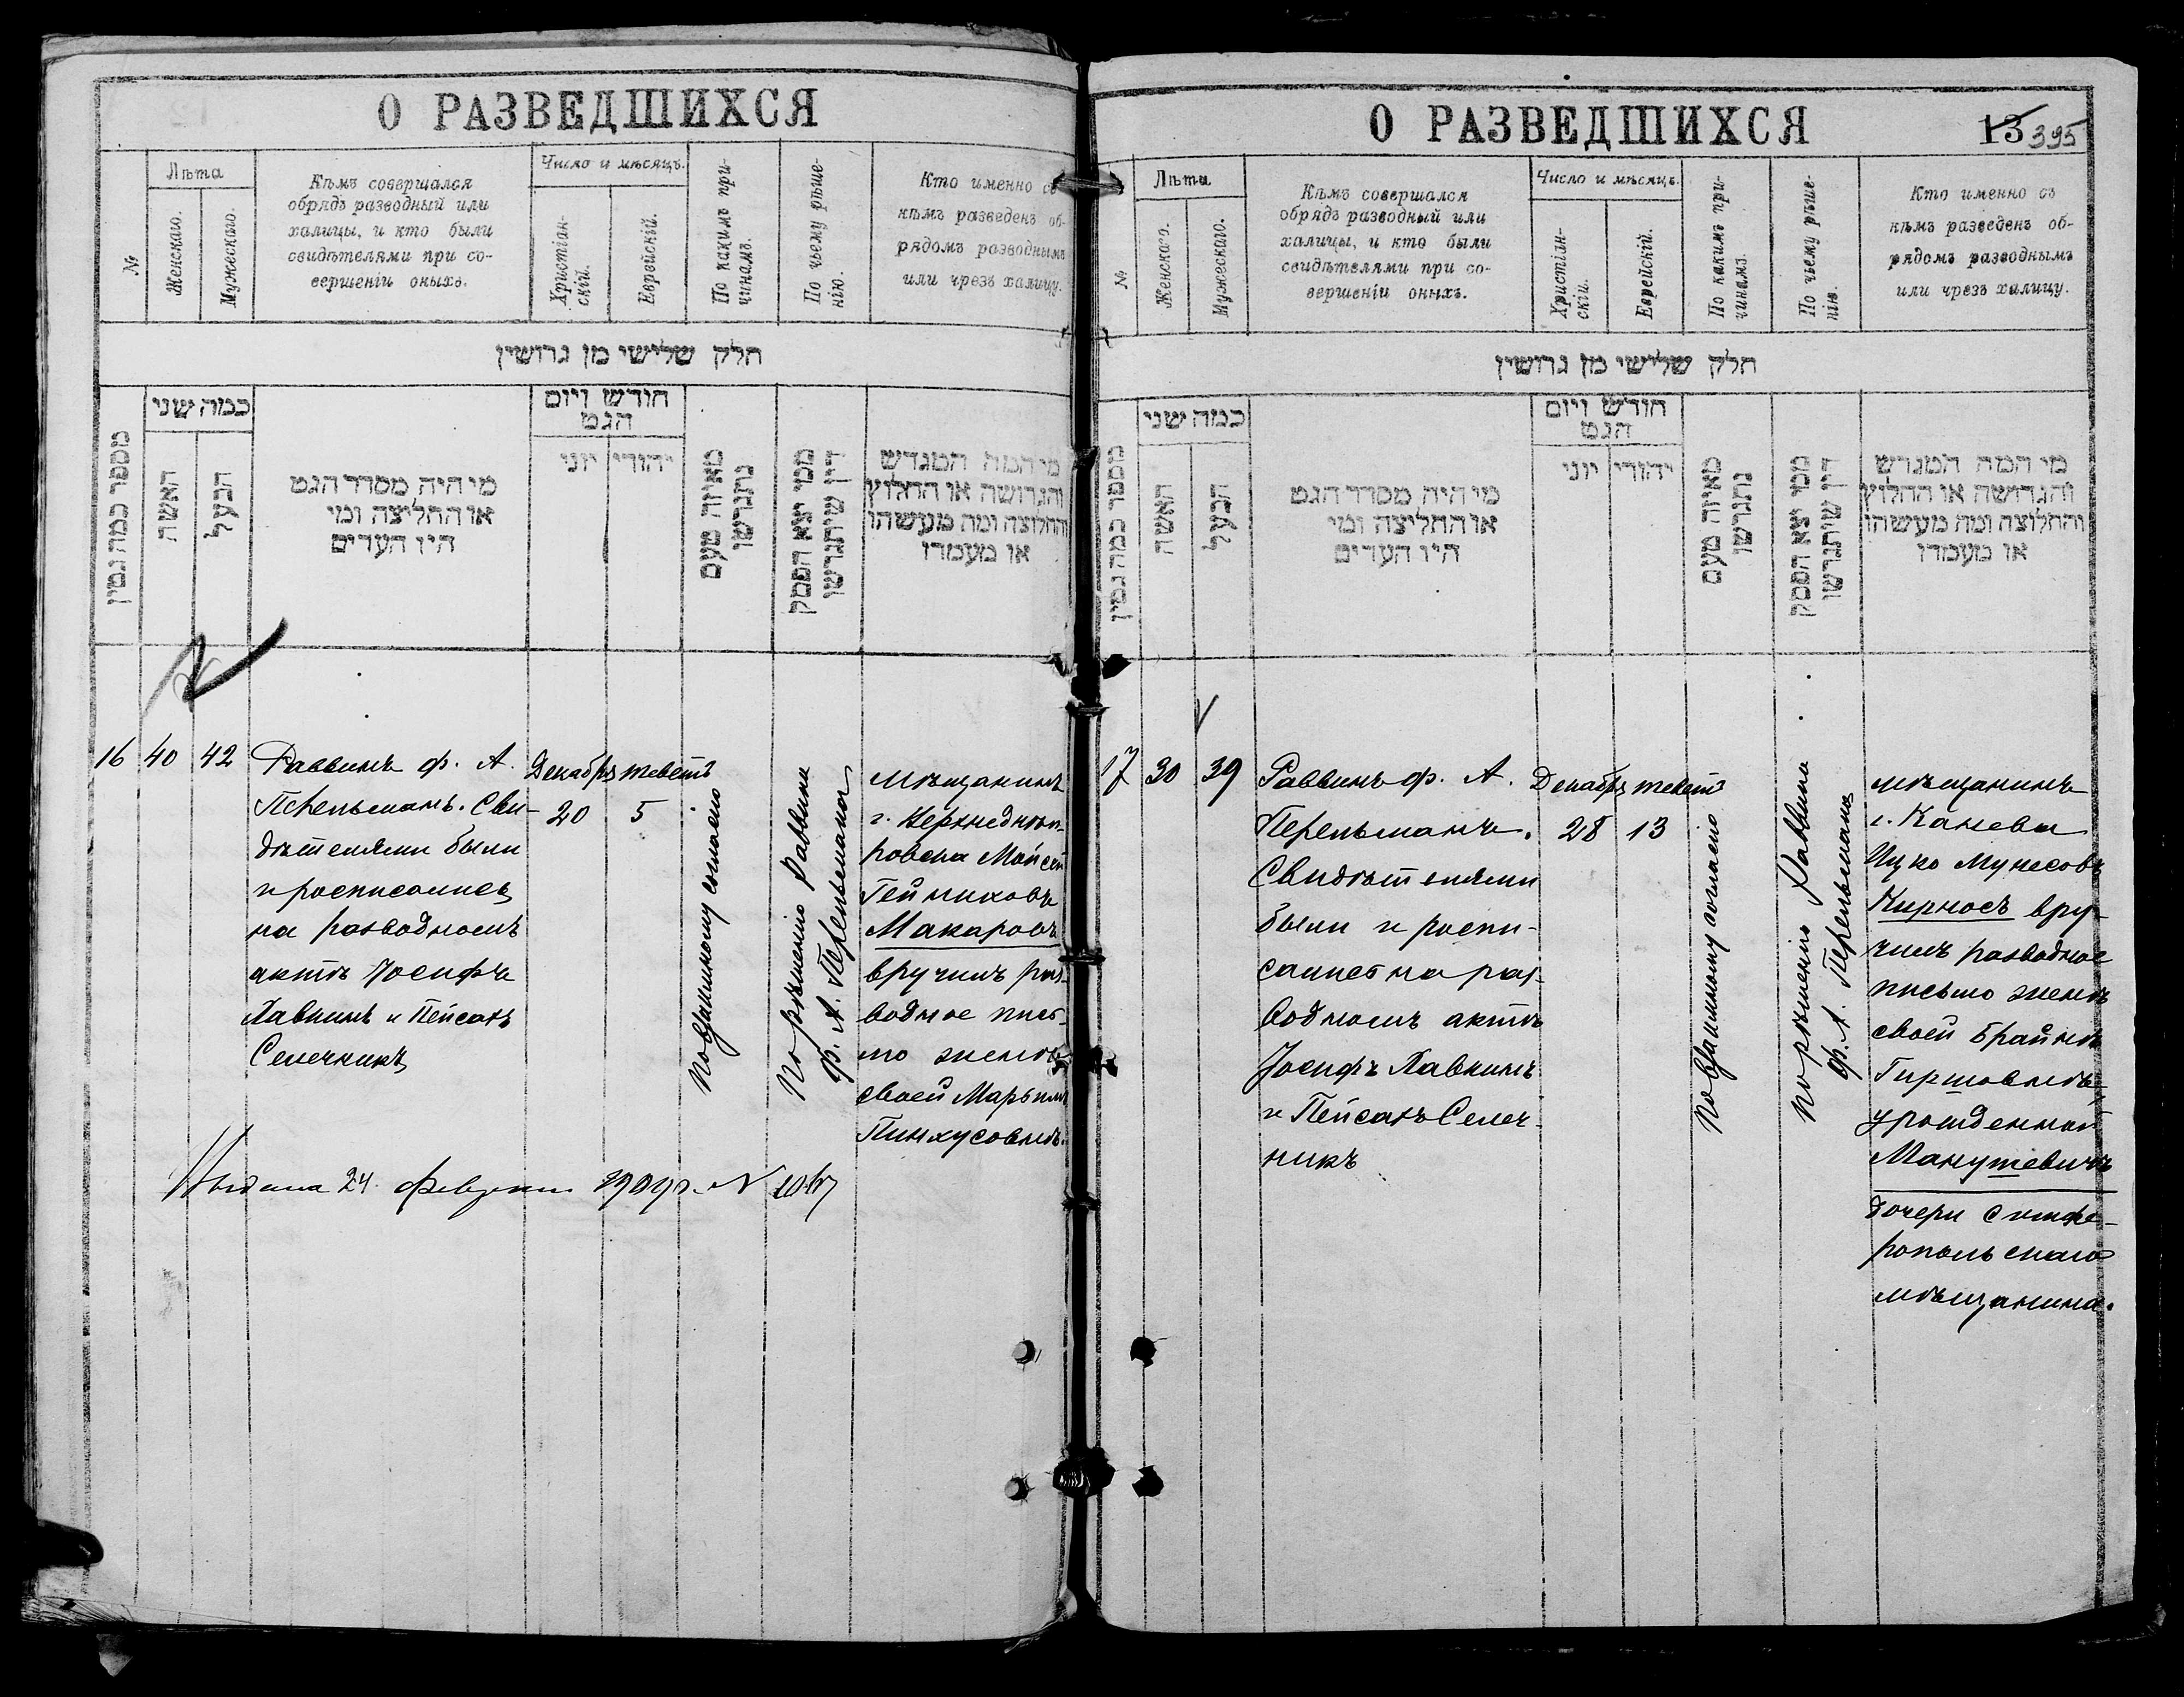 О РАЗВЕДШИХСЯ
№
Лѣта
Женскаго.
Мужескаго.
Кѣмъ совершался
обрядъ разводный или
халицы, и кто были
свидѣтелями при со-
вершеніи оныхъ.
Число и мѣсяцъ.
Христіан-
скій.
Еврейскій.
По какимъ при-
чинамъ.
По чьему рѣше-
нію.
Кто именно съ
кѣмъ разведенъ об-
рядомъ разводнымъ
или чрезъ халицу.
חלק שלישי מן גרושין
מספר כמה גטין
כמה שני
האשה
הבעל
מי היה מסדר הגט
או החליצה ומי
היו העדים
חודש ויום
הגט
יוני
יהודי
מאיזה טעם
נתגרשו
ממי יצא הפסק
דין שיתגרשו
מי המה המגרש
והגרושה או החלוץ
והחלוצה ומה מעשהו
או מעמדו
16 40 42
Раввинъ ф. А.
Перельманъ. Сви-
дѣтелями были
и росписались
на разводномъ
актѣ Іосифъ
Хавкинъ и Пейсахъ
Селечникъ
Декабрь теветъ
20 5
По взаимному согласію
По рѣшенію Раввина
ф. А. Перельмана
Мѣщанинъ
г. Верхнеднѣп-
ровска Мойсей
Макаровъ
вручилъ раз-
водное пись-
мо женѣ
своей Марьямъ
Пинхусовнѣ.
Выдана 24 февраля 1909 г. №
О РАЗВЕДШИХСЯ
13 395
№
Лѣта
Женскаго.
Мужескаго.
Кѣмъ совершался
обрядъ разводный или
халицы, и кто были
свидѣтелями при со-
вершеніи оныхъ.
Число и мѣсяцъ.
Христіан-
скій.
Еврейскій.
По какимъ при-
чинамъ.
По чьему рѣше-
нію.
Кто именно съ
кѣмъ разведенъ об-
рядомъ разводнымъ
или чрезъ халицу.
חלק שלישי מן גרושין
מספר כמה גטין
כמה שני
האשה
הבעל
מי היה מסדר הגט
או החליצה ומי
היו העדים
חודש ויום
הגט
יוני
יהודי
מאיזה טעם
נתגרשו
ממי יצא הפסק
דין שיתגרשו
מי המה המגרש
והגרושה או החלוץ
והחלוצה ומה מעשהו
או מעמדו
17 30 39
Раввинъ ф. А.
Перельманъ.
Свидѣтелями
были и роспи-
сались на раз-
водномъ актѣ
Іосифъ Хавкинъ
и Пейсахъ Селеч-
никъ
Декабрь тевет
28 13
По взаимному согласію
По рѣшенію Раввина
ф. А. Перельмана
мѣщанинъ
г. Канева
Ицко Мунесовъ
Кирносъ вру-
чилъ разводное
письмо женѣ
своей Брайнѣ
Гиршовнѣ,
урожденной
Манушевичъ
дочери симфе-
ропольскаго
мѣщанина.